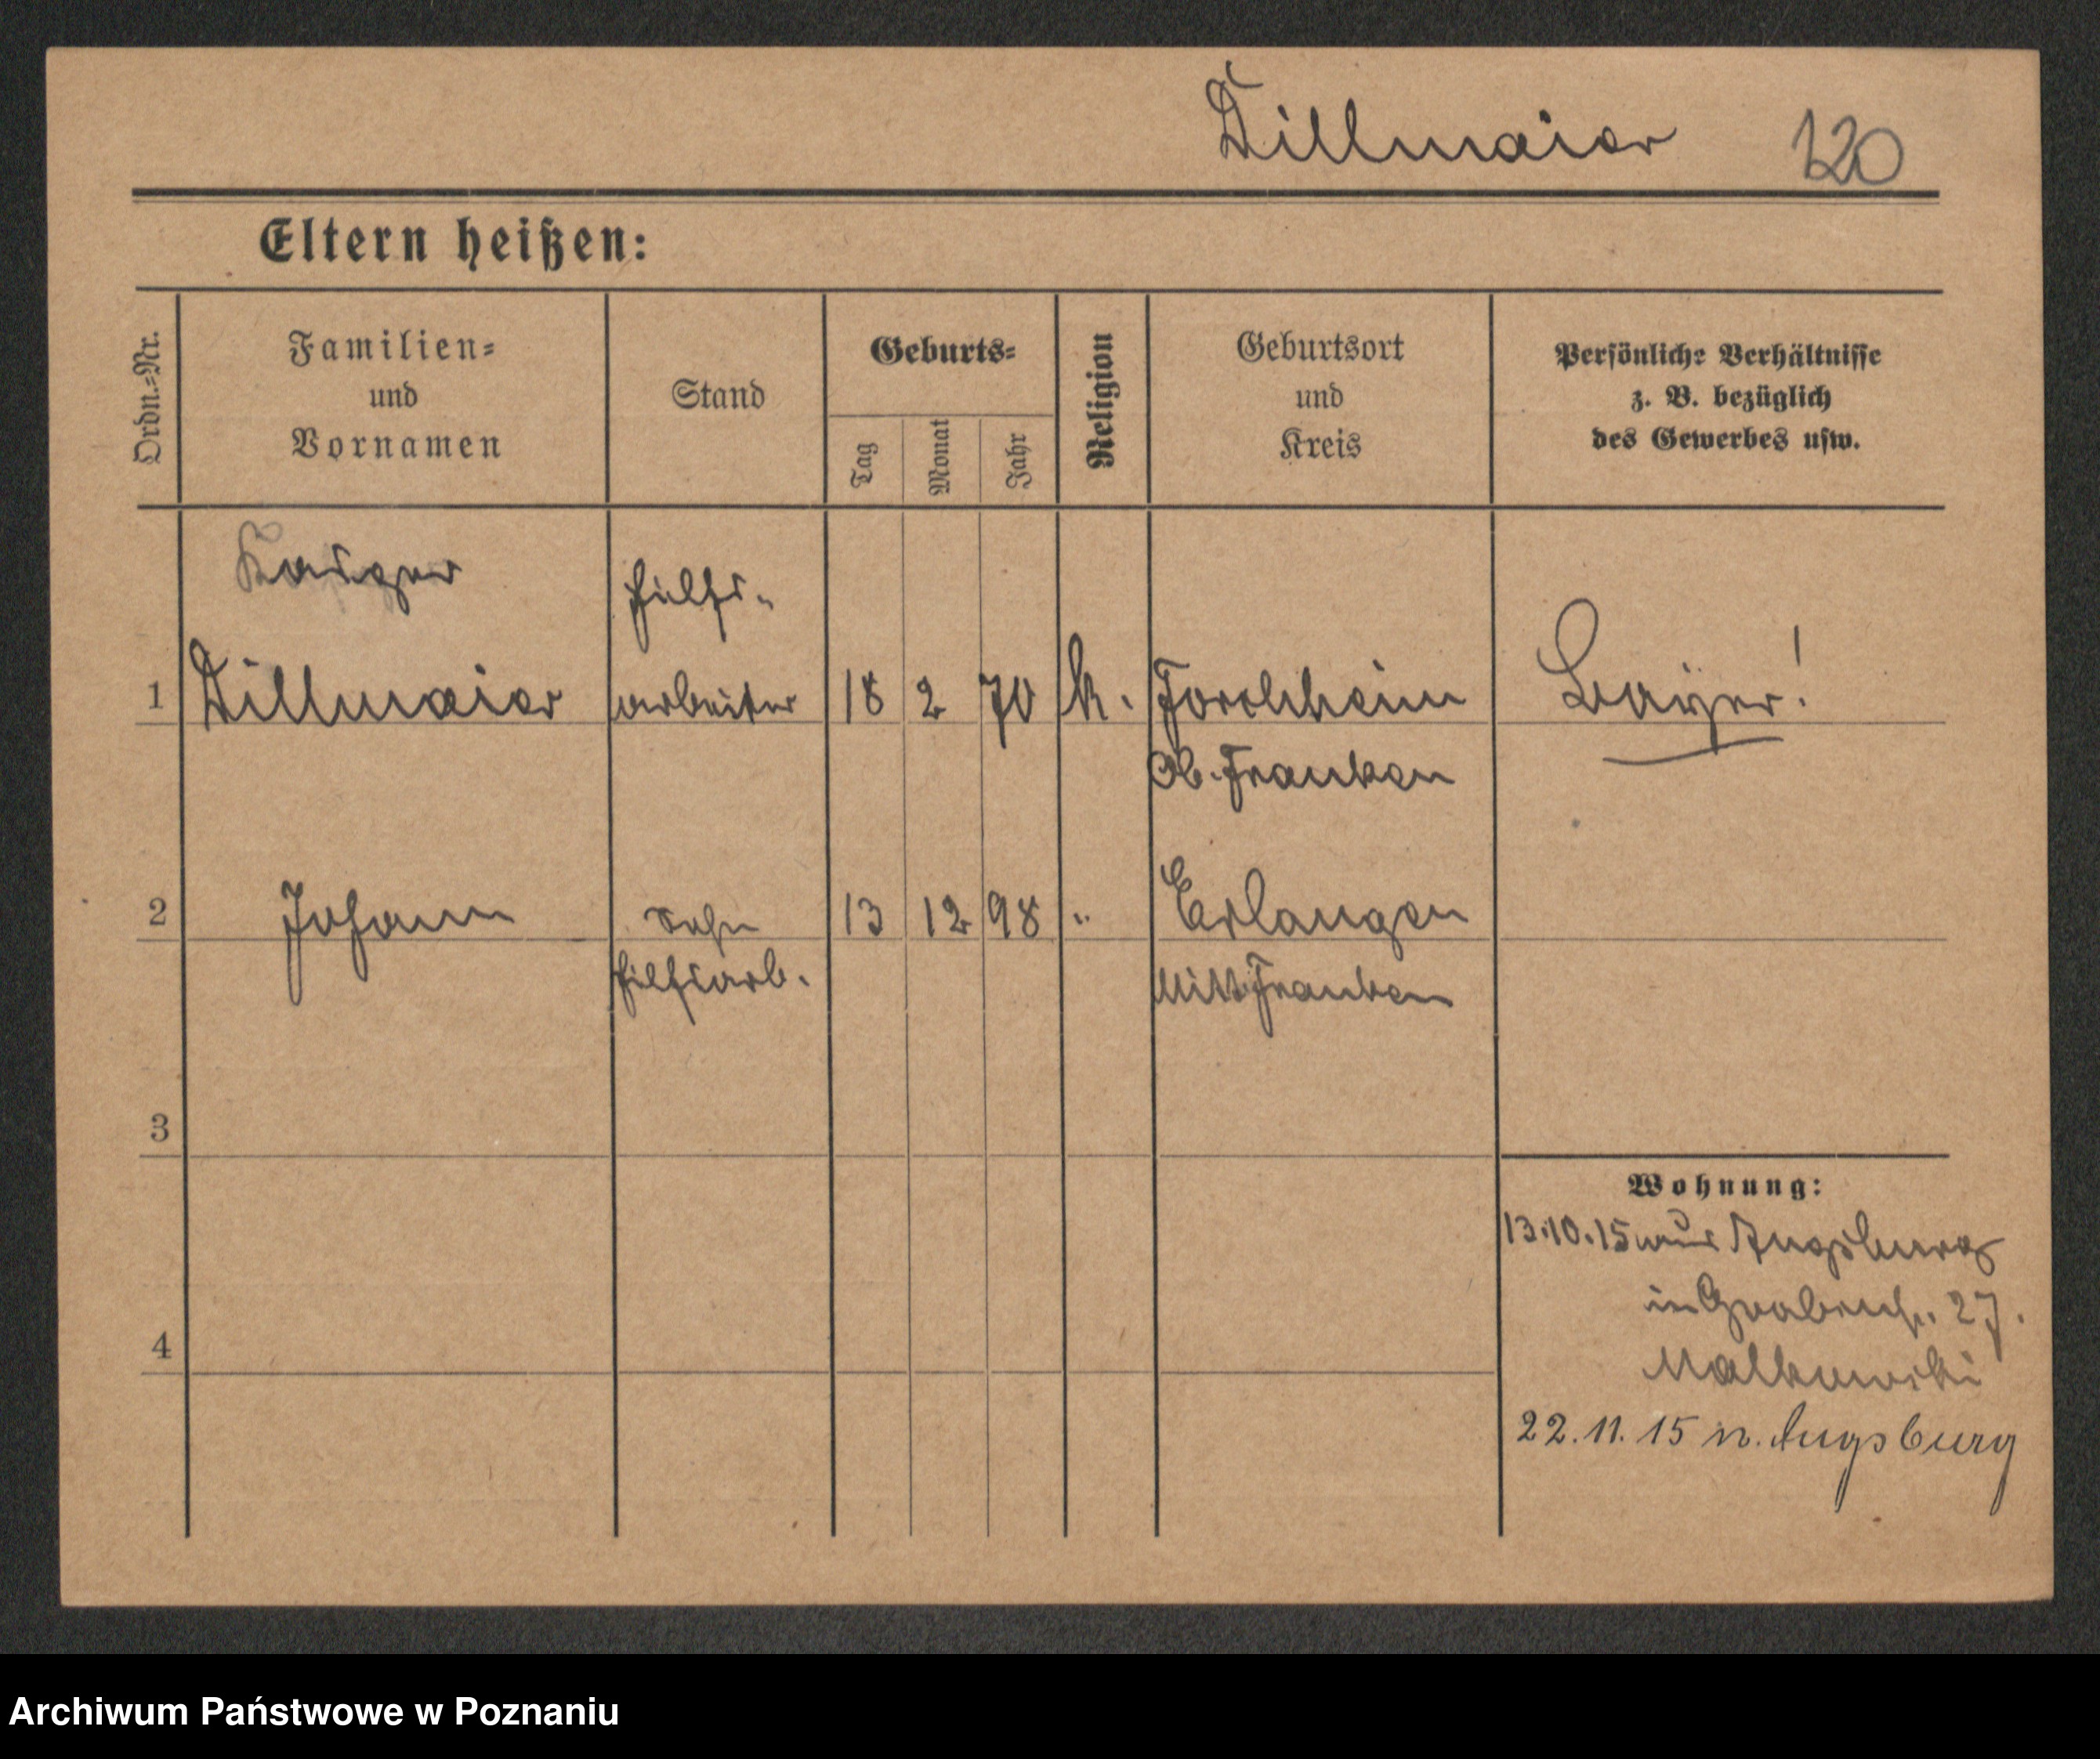 Dillmaier 120
Eltern heißen:
Ordn.-Nr.
Familien-
und
Vornamen
Stand
Geburts-
Tag
Monat
Jahr
Religion
Geburtsort
und
Kreis
Persönliche Verhältnisse
z. B. bezüglich
des Gewerbes usw.
Hülfs-
1 Dillmaier arbeiter 18 2 70 k. Forchheim Bayer!
Ob. Franken
2 Johann Sohn 13 12 98 " Erlangen
Hilfsarb. Mitt Franken
3
4
Wohnung:
13.10.15 aus Augsburg
in 27.
Malkowski
22.11.15 n. Augsburg
Archiwum Państwowe w Poznaniu